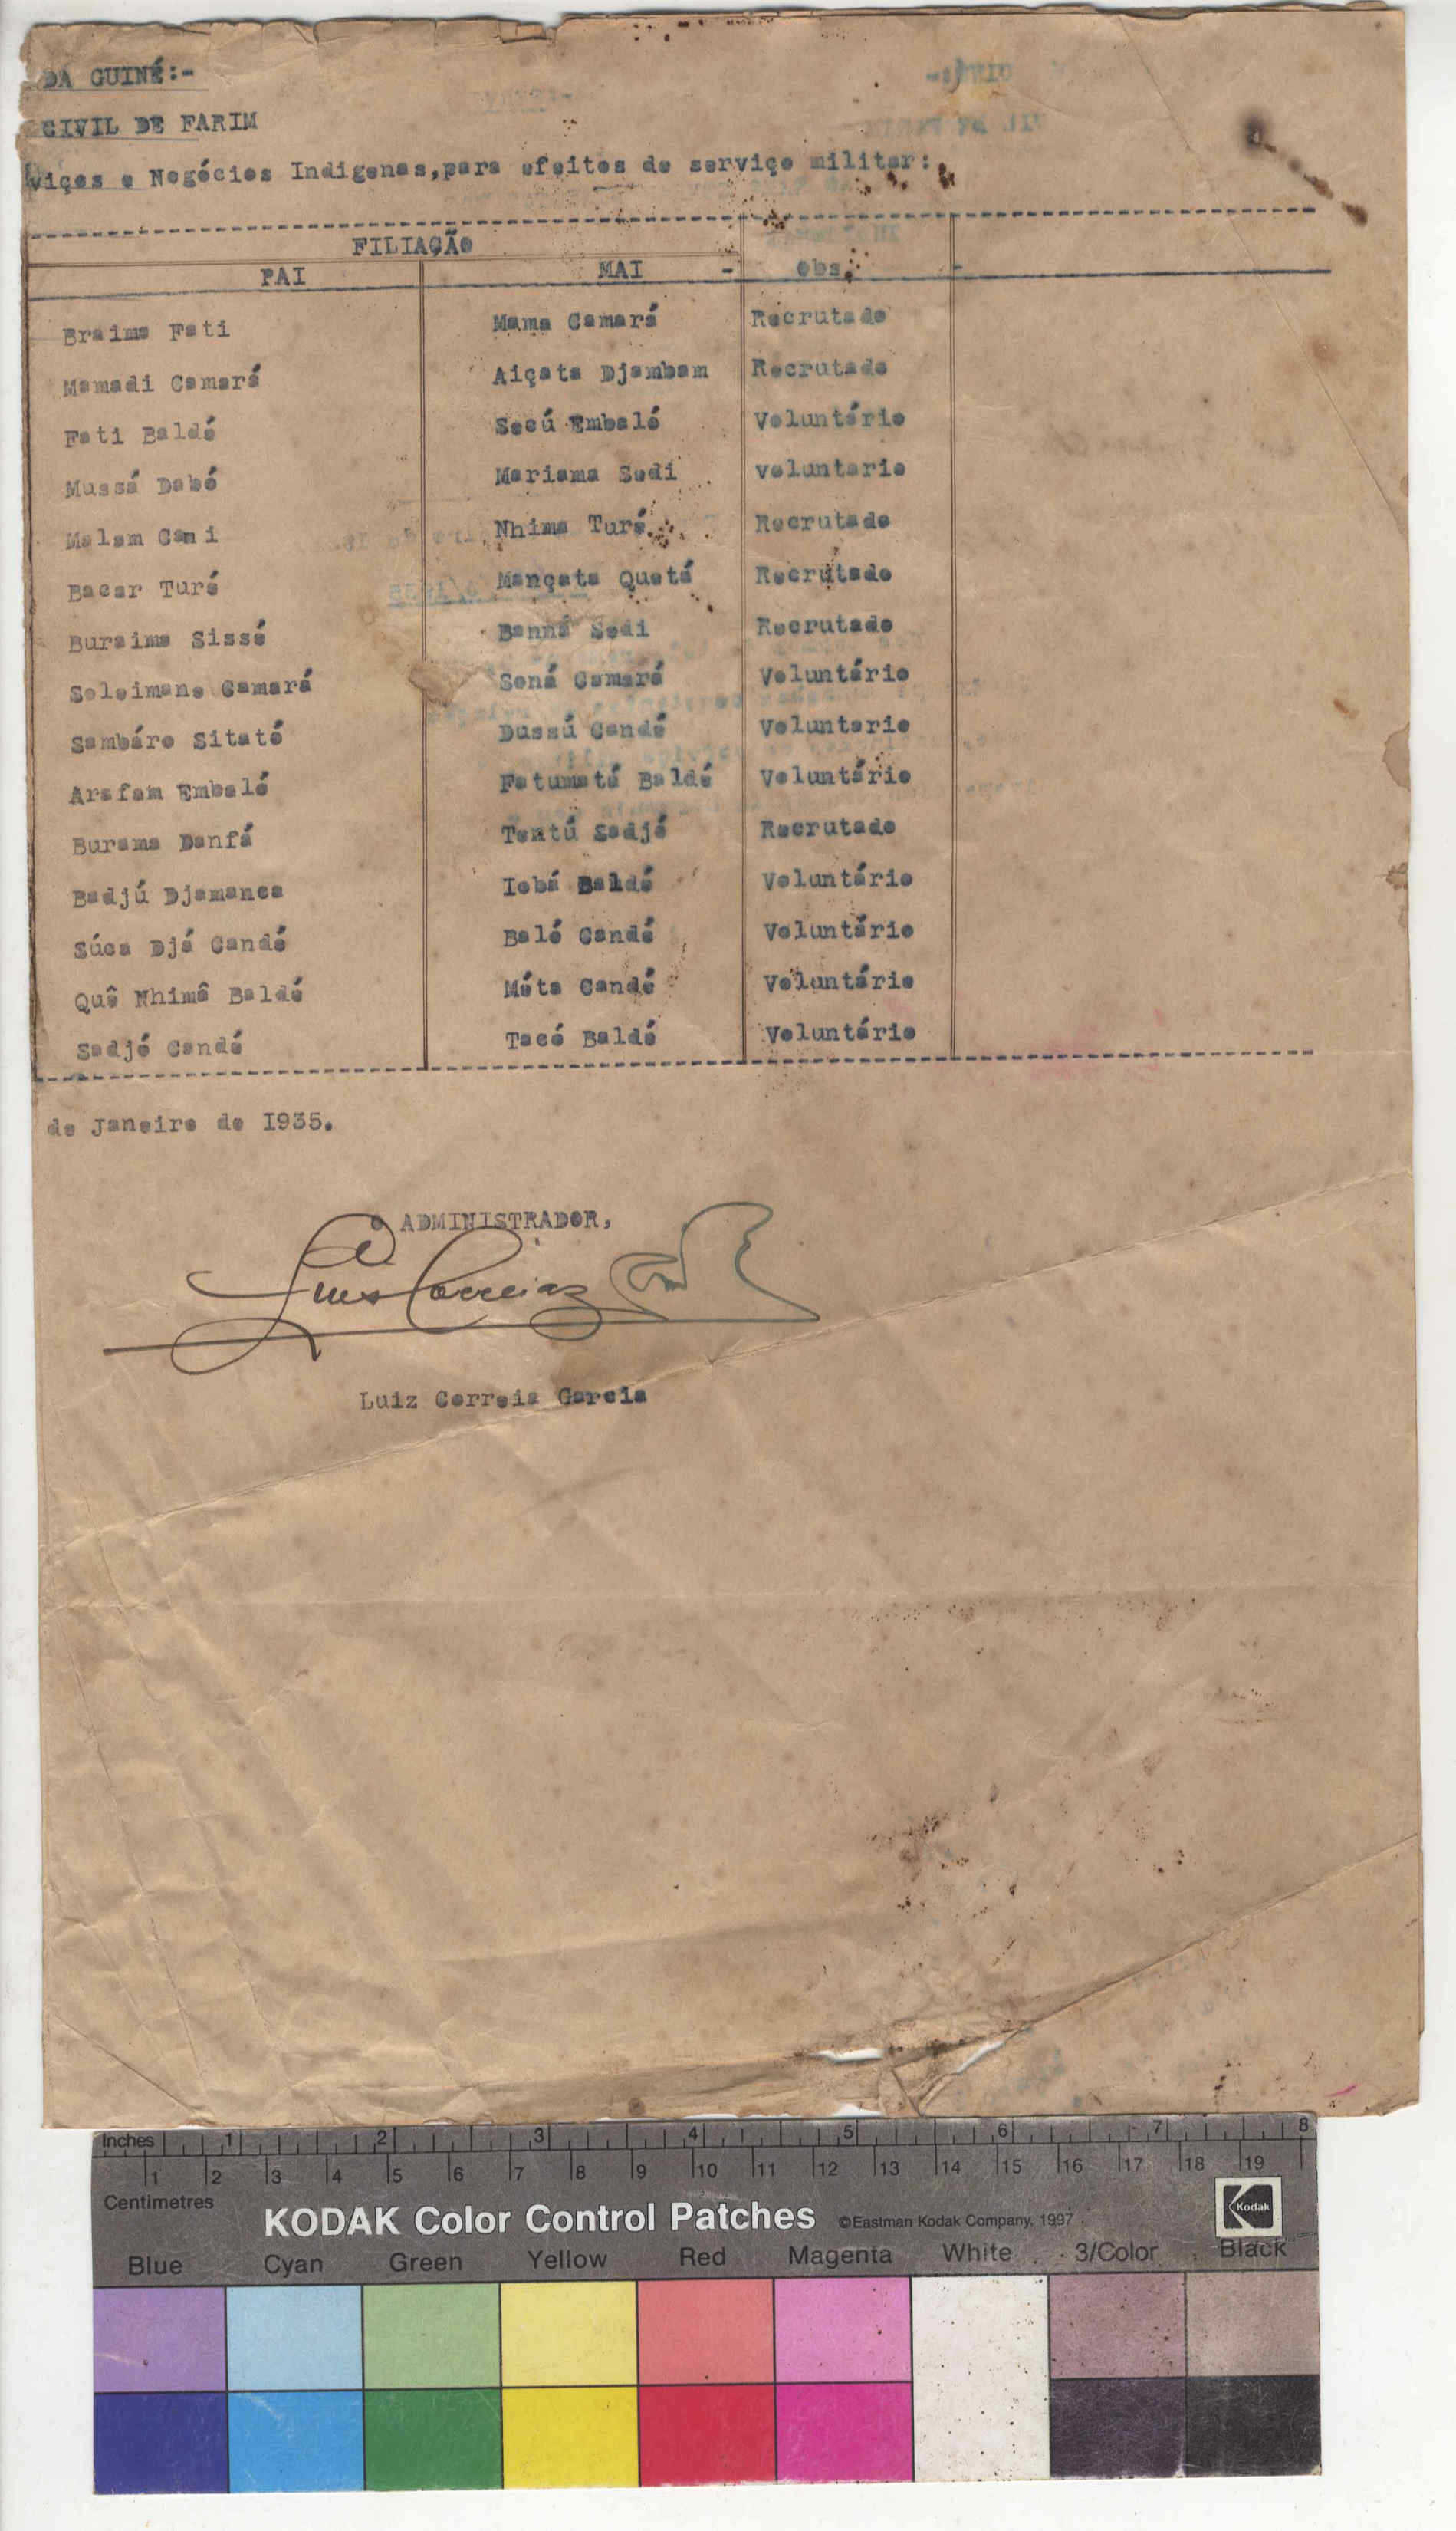 DA GUINÉ:-
CIVIL DE FARIM
viços e Negócios Indigenas,para efeitos de serviço militar:
FILIAÇÃO
PAI MAI - obs. -
Braima Fati Mama Camará Recrutado
Mamadi Camará Aiçata Djambam Recrutado
Fati Baldé Secú Embaló Voluntário
Mussá Dabó Mariama Sedi voluntario
Malam Cani Nhima Turé Recrutado
Bacar Turé Mançata Quetá Recrutado
Buraima Sissé Banná Sedi Recrutado
Soleimane Camará Soná Camará Voluntário
Sambáro Sitató Dussú Candé Voluntario
Arafam Embaló Fatumatá Baldé Voluntário
Burama Danfá Tentú Sadjó Recrutado
Badjú Djamanca Iobá Baldé Voluntário
Súca Djá Candé Baló Candé Voluntário
Quê Nhimâ Baldé Méta Candé Voluntário
Sadjó Candé Tacó Baldé Voluntário
de Janeiro de 1935.
O ADMINISTRADOR,
Luis Correia
Luiz Correia Garcia
Inches 1 2 3 4 5 6 7 8
1 2 3 4 5 6 7 8 9 10 11 12 13 14 15 16 17 18 19
Centimetres
KODAK Color Control Patches ©Eastman Kodak Company, 1997 Kodak
Blue Cyan Green Yellow Red Magenta White 3/Color Black